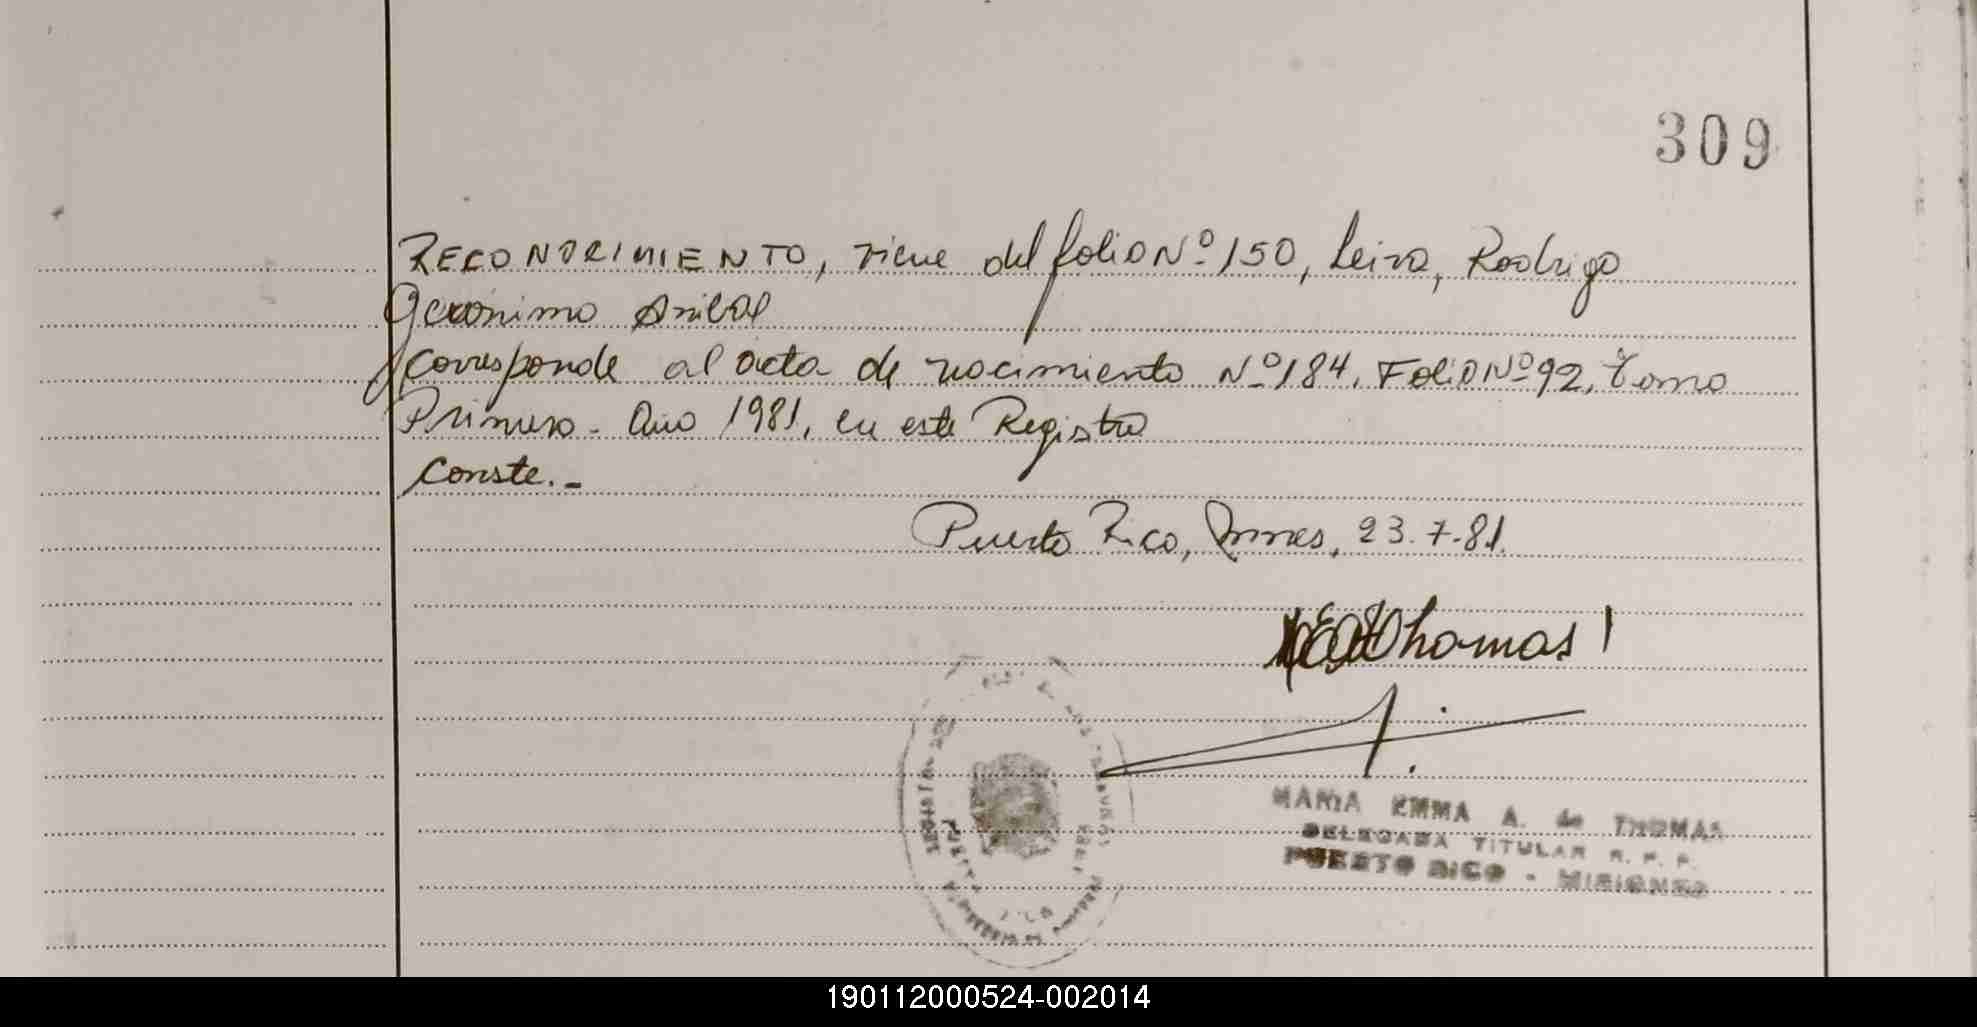 309
RECONOCIMIENTO, viene del folio Nº 150, Leiva, Rodrigo
Geronimo Anibal
Corresponde al acta de nacimiento Nº 184, Folio Nº 92, Tomo
Primero - Año 1981, en este Registro
Conste.-
Puerto Rico, Mnes, 23.7.81.
Thomas
MARIA EMMA A. de THOMAS
DELEGADA TITULAR R. P. P.
PUERTO RICO - MISIONES
190112000524-002014